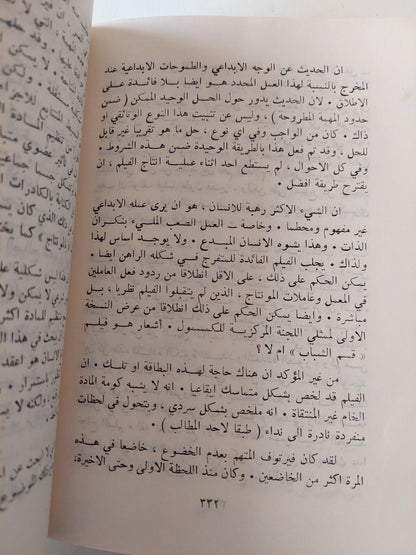 ان الحديث عن الوجه الابداعي والطموحات الابداعية عند
المخرج بالنسبة لهذا العمل المحدد هو ايضا بلا فائدة على
الاطلاق ٠ لان الحديث يدور حول الحل الوحيد الممكن ( ضمن
حدود المهمة المطروحة ) ، وليس عن تثبيت هذا النوع الوثائقي او
ذاك ٠ كان من الواجب وفي اي نوع ، حل ما هو تقريبا غير قابل
للحل ، وقد تم فعل هذا بالطريقة الوحيدة ضمن هذه الشروط ٠
وفي كل الاحوال ، لم يستطع احد اثناء عملية انتاج الفيلم ، ان
يقترح طريقة افضل ٠
ان الشيء الاكثر رهبة للانسان ، هو ان يرى عمله الابداعي
غير مفهوم ومحطما ٠ وخاصة ــ العمل الصعب المليء بنكران
الذات ٠ وهذا يشوه الانسان المبدع ٠ ولا يوجد اساس لهذا
ولذاك ٠ يجلب الفيلم الفائدة للمتفرج في شكله الراهن ايضا ٠
يمكن الحكم على ذلك ، على الاقل انطلاقا من ردود فعل العاملين
في المعمل وعاملات المونتاج ، الذين لم يتقبلوا الفيلم نظريا ، بل
مباشرة ٠ وايضا يمكن الحكم على ذلك انطلاقا من عرض النسخة
الاولى لممثلي اللجنة المركزية للكمسمول ٠ أشعار هو فيلم
« قسم الشباب » ام لا ؟
من غير المؤكد ان هناك حاجة لهذه البطاقة او تلك ٠ ان
الفيلم قد لخص بشكل متماسك ايقاعيا ٠ انه لا يشبه كومة المادة
الخام غير المنتقاة ٠ انه ملخص بشكل سردي ، ويتحول في لحظات
منفردة نادرة الى نداء ( طبقا لاحد المطالب ) ٠
لقد كان فيرتوف المتهم بعدم الخضوع ، خاضعا في هذه
المرة اكثر من الخاضعين ٠ وكان منذ اللحظة الاولى وحتى الاخيرة،
٣٣٢